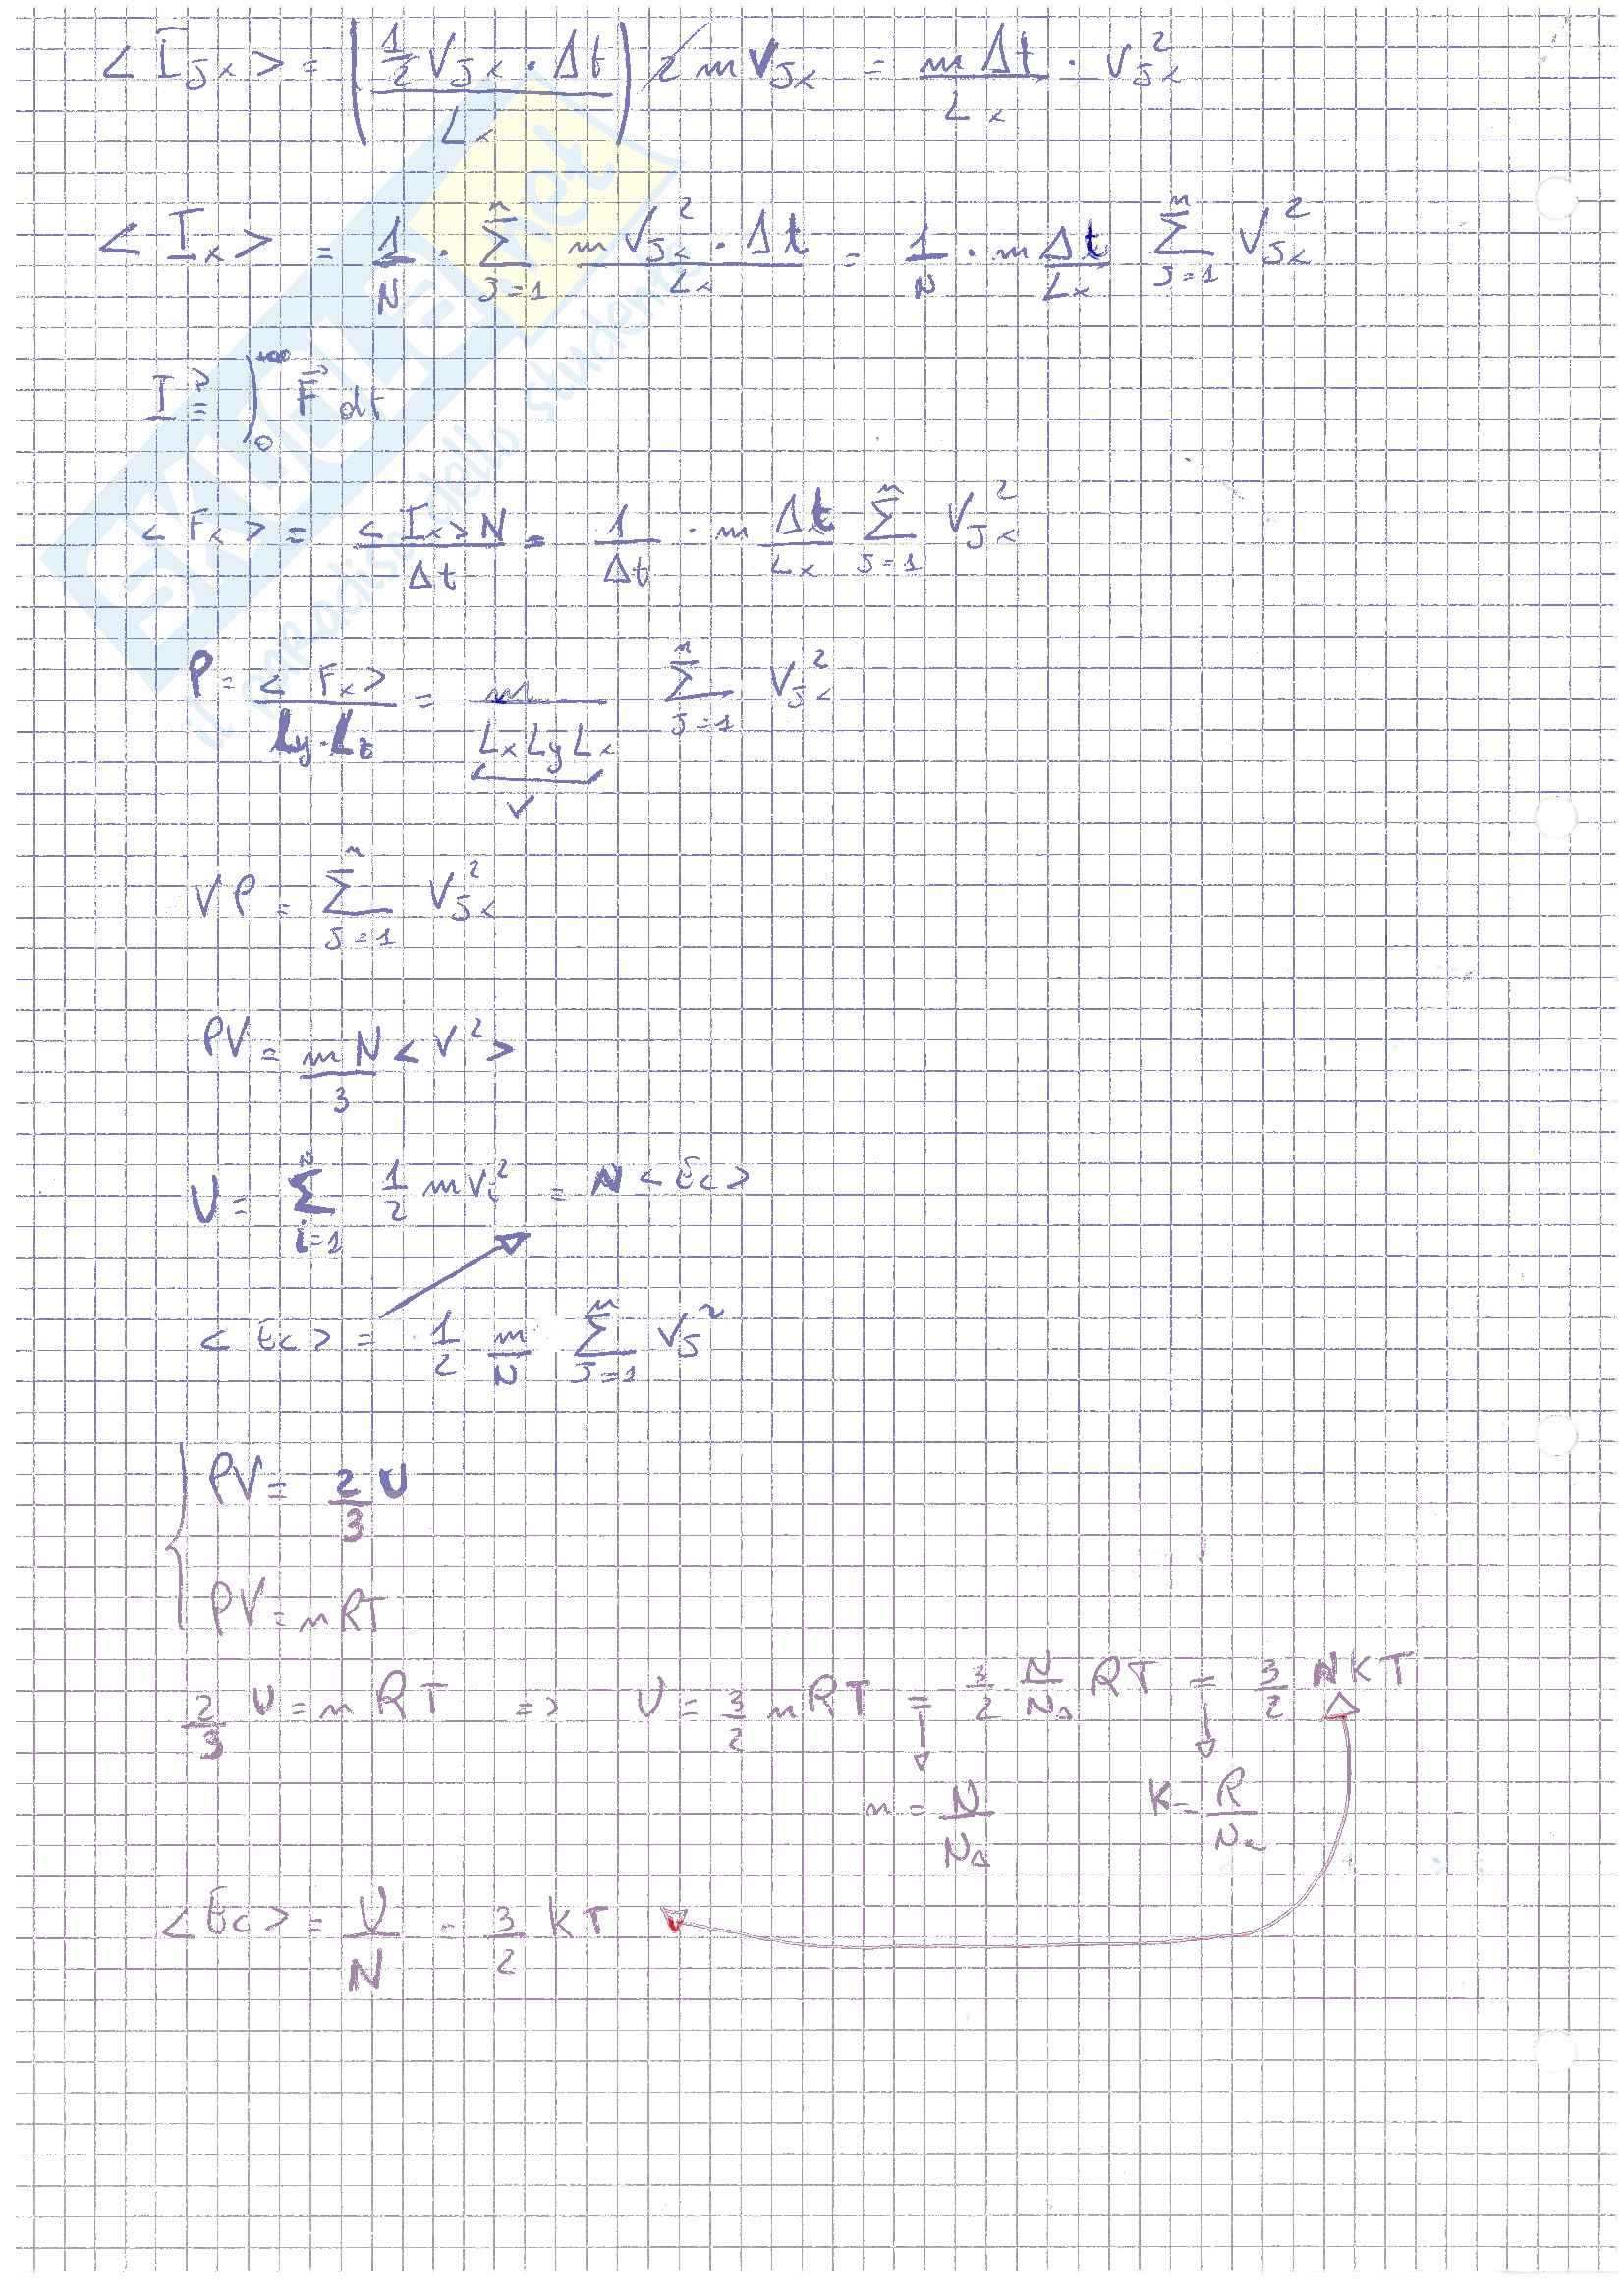 < I_Jx > = ( (1/2 V_Jx · Δt) / L_x ) 2 m V_Jx = (m Δt / L_x) · V_Jx²
< I_x > = 1/N · Σ_{J=1}^{n} (m V_Jx² · Δt) / L_x = 1/N · m Δt/L_x Σ_{J=1}^{n} V_Jx²
I = ∫_0^{+∞} F⃗ dt
< F_x > = (< I_x > N) / Δt = 1/Δt · m Δt/L_x Σ_{J=1}^{n} V_Jx²
P = < F_x > / (L_y · L_z) = m / (L_x L_y L_x) Σ_{J=1}^{n} V_Jx²
V
V P = Σ_{J=1}^{n} V_Jx²
PV = (m N / 3) < V² >
U = Σ_{i=1}^{n} 1/2 m V_i² = N < Ec >
< Ec > = 1/2 m/N Σ_{J=1}^{n} V_J²
PV = 2/3 U
PV = n R T
2/3 U = n R T => U = 3/2 n R T = 3/2 N/N_A R T = 3/2 N K T
n = N/N_A K = R/N_A
< Ec > = U/N = 3/2 K T